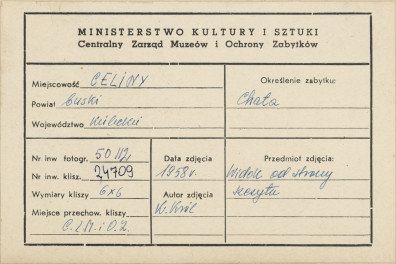 MINISTERSTWO KULTURY I SZTUKI
Centralny Zarząd Muzeów i Ochrony Zabytków
Miejscowość CELINY
Powiat Buski
Województwo Kieleckie
Określenie zabytku:
Chata
Nr inw fotogr.
Nr inw. klisz. 24709
Wymiary kliszy 6x6
Miejsce przechow. kliszy
C.Z.M.i O.Z.
Data zdjęcia
1958r.
Autor zdjęcia
K. Król
Przedmiot zdjęcia:
Widok od strony
szczytu